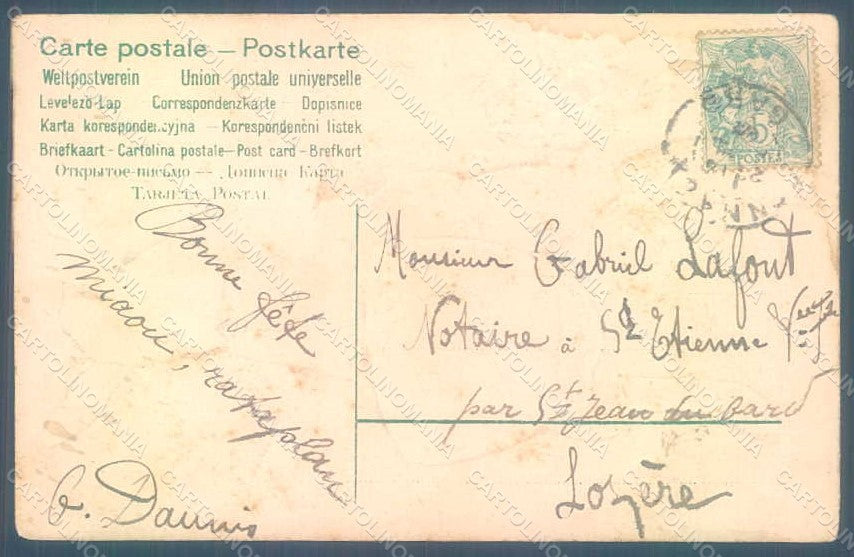 Carte postale — Postkarte
Weltpostverein Union postale universelle
Levelező-Lap Correspondenzkarte – Dopisnice
Karta korespondencyjna – Korespondenční listek
Briefkaart - Cartolina postale – Post card - Brefkort
Открытое-письмо — Дописна Карта
TARJETA POSTAL
Bonne fête
miaou, rataplan
G. Daunis
5
POSTES
GARD
Monsieur Gabriel Lafont
Notaire à St Etienne
par St Jean du Gard
Lozère
CARTOLINOMANIA